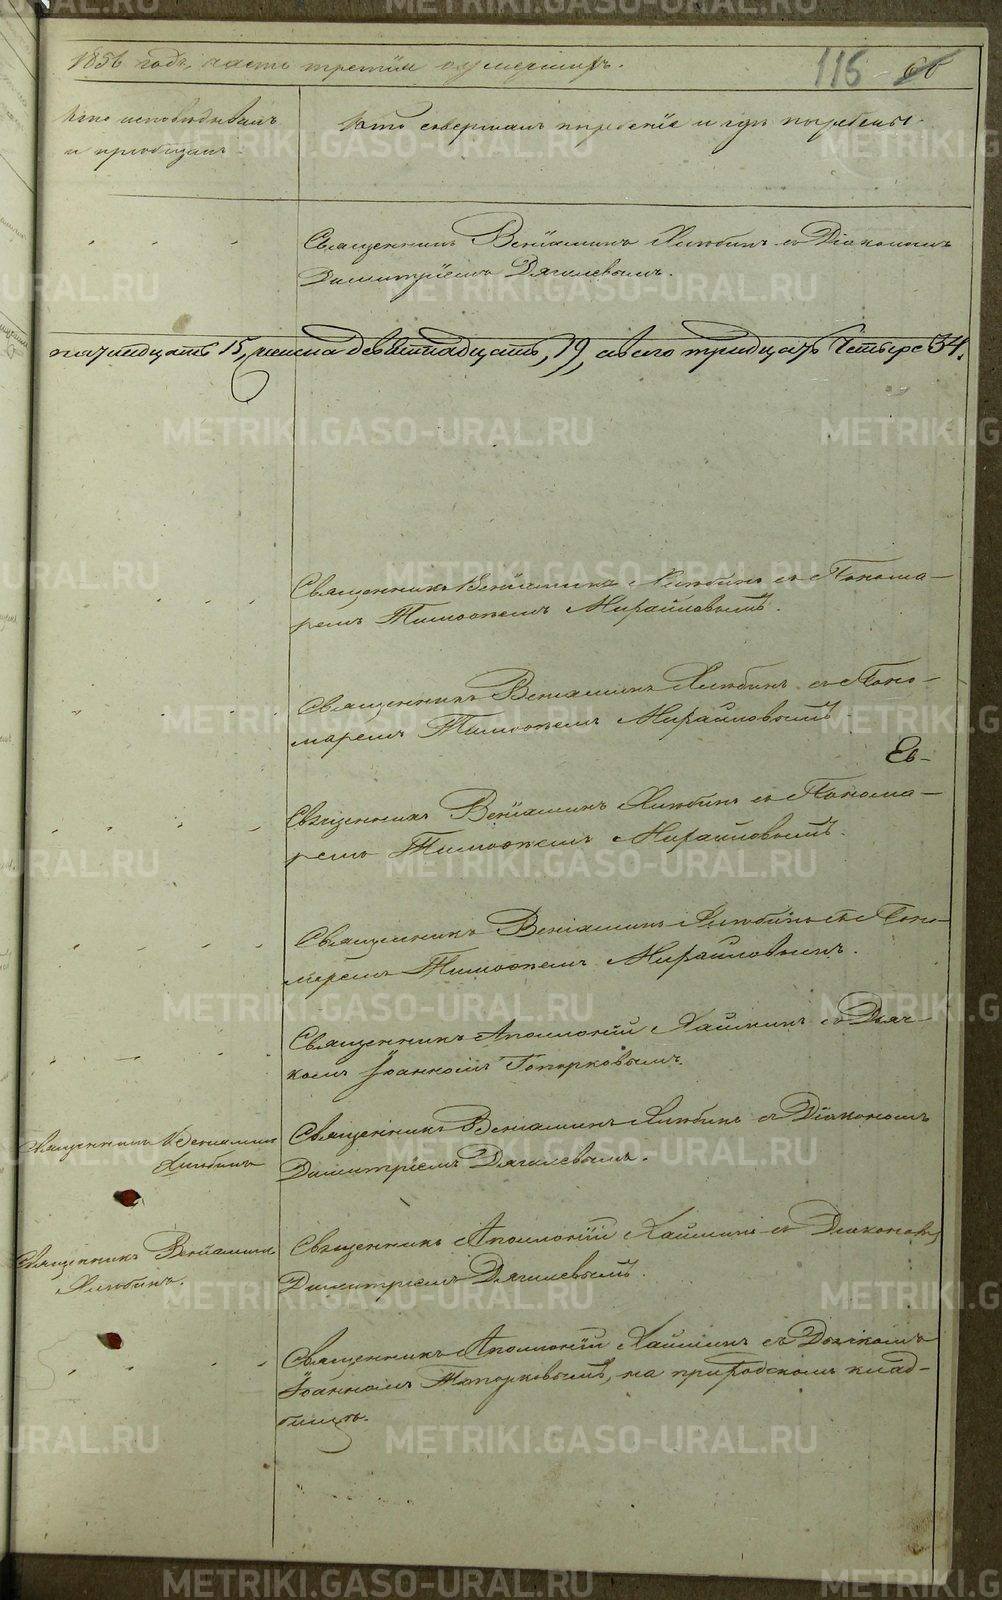 1856 годъ, часть третія о умершихъ.
115 66
Кто исповѣдывалъ
и пріобщалъ.
Кто совершалъ погребеніе и гдѣ погребены.
Священникъ Веніаминъ Хлюбинъ съ Діакономъ
Димитріемъ Дягилевымъ.
пятнадцать 15, женска девятнадцать, 19, а всего тридцать четыре 34.
Священникъ Веніаминъ Хлюбинъ съ Понома-
ремъ Тимоѳеемъ Михайловымъ.
Священникъ Веніаминъ Хлюбинъ съ Поно-
маремъ Тимоѳеемъ Михайловымъ.
Ев-
Священникъ Веніаминъ Хлюбинъ съ Понома-
ремъ Тимоѳеемъ Михайловымъ.
Священникъ Веніаминъ Хлюбинъ съ Поно-
маремъ Тимоѳеемъ Михайловымъ.
Священникъ Аполлоній Хайминъ съ Дьяч-
комъ Іоанномъ Топорковымъ.
Священникъ Веніаминъ
Хлюбинъ
Священникъ Веніаминъ Хлюбинъ съ Діакономъ
Димитріемъ Дягилевымъ.
Священникъ Веніаминъ
Хлюбинъ.
Священникъ Аполлоній Хайминъ съ Діакономъ
Димитріемъ Дягилевымъ.
Священникъ Аполлоній Хайминъ съ Дьячкомъ
Іоанномъ Топорковымъ, на приходскомъ клад-
бищѣ.
METRIKI.GASO-URAL.RU